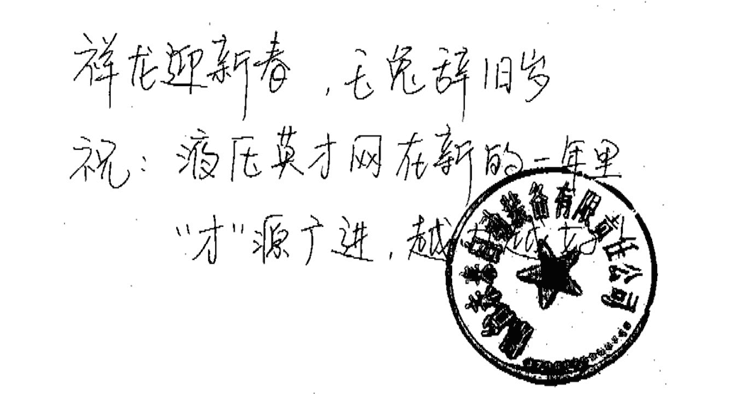 祥龙迎新春，玉兔辞旧岁
祝：液压英才网在新的一年里
“才”源广进，越 越好
装备有限责任公司